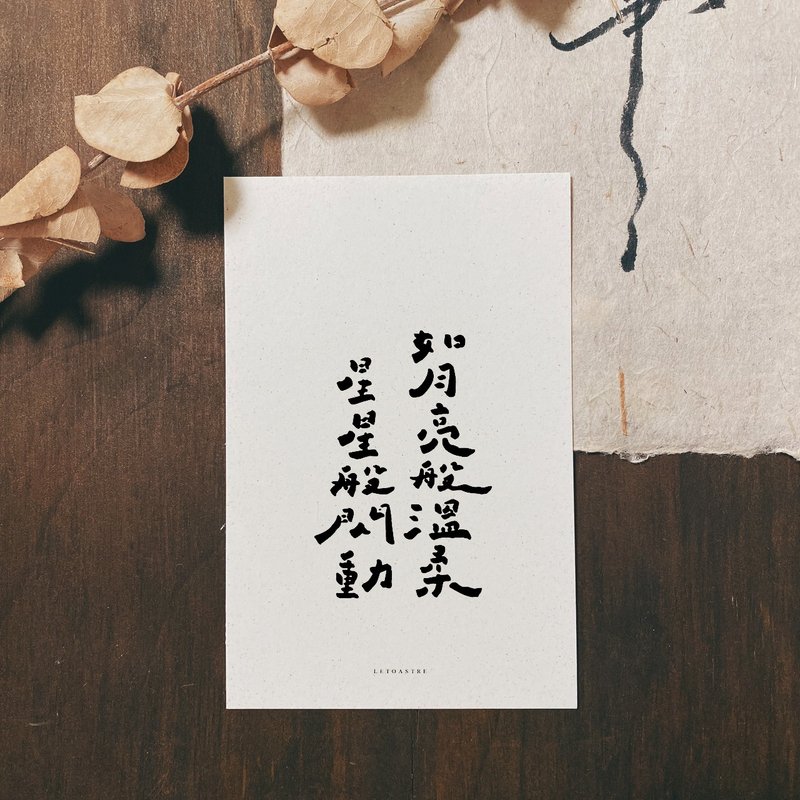 如月亮般溫柔
星星般閃動
LETOASTRE